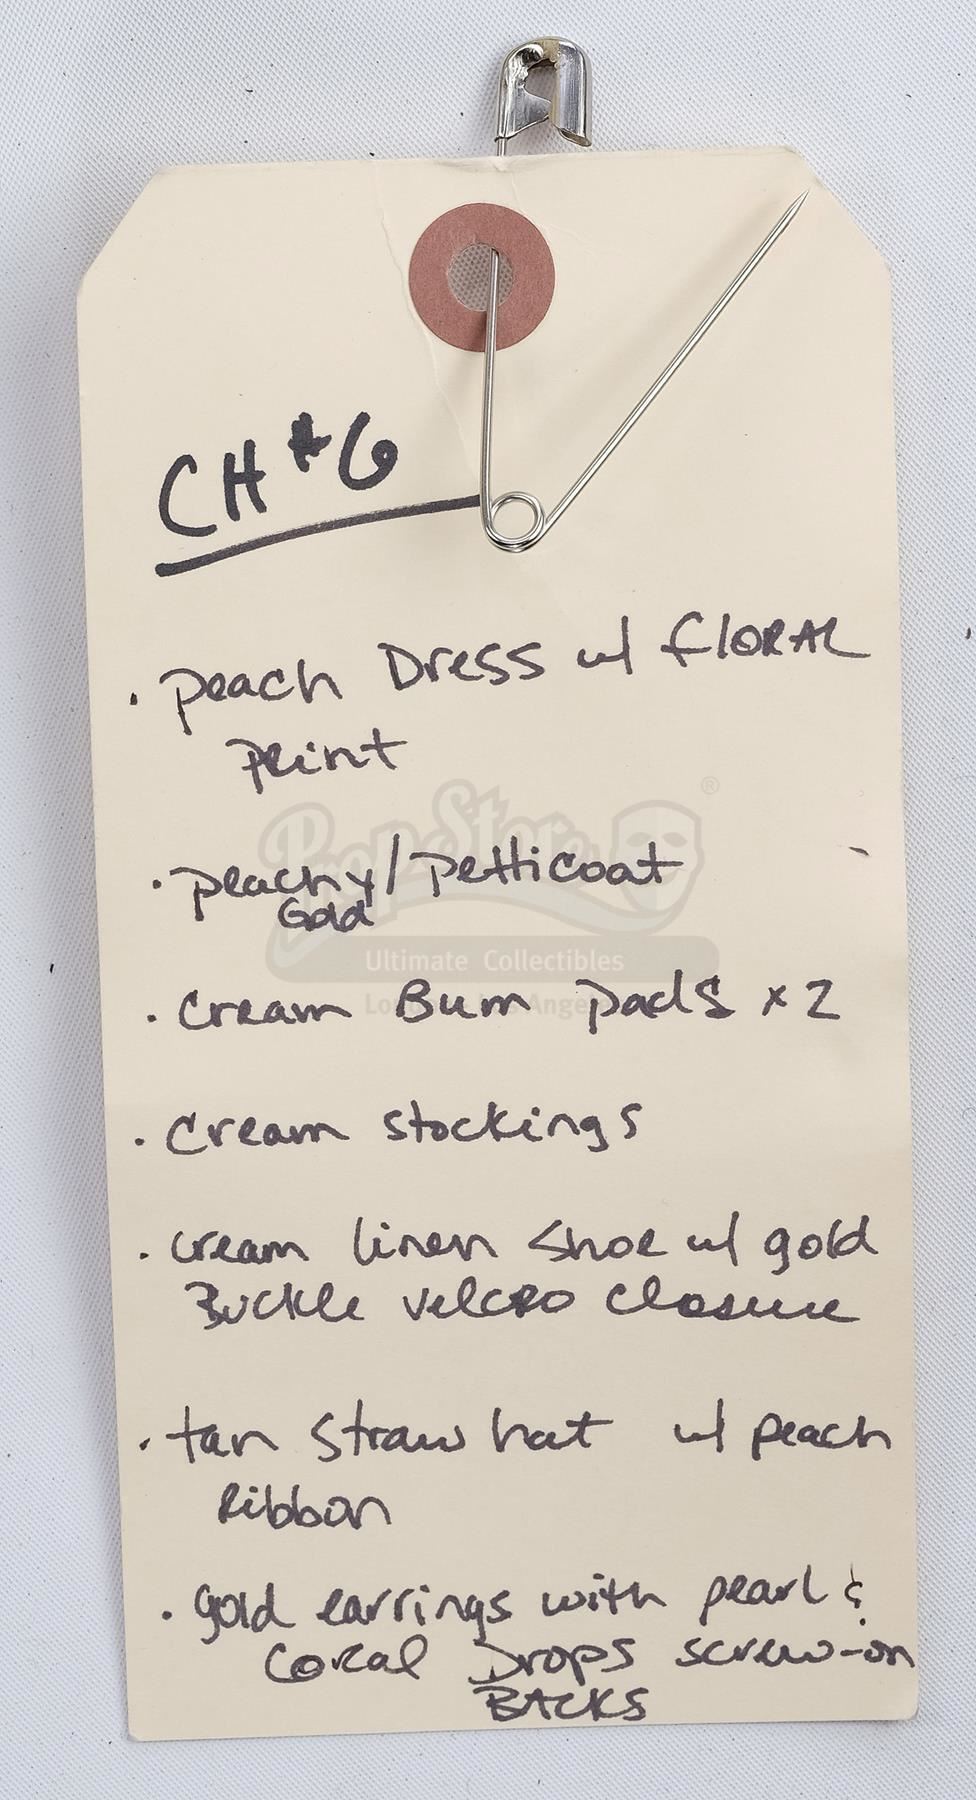 CH #6
· peach Dress w/ fLORAL
print
· peachy/petticoat
Gold
· cream Bum pads x 2
· cream stockings
· cream linen shoe w/ gold
Buckle velcro closure
· tan straw hat w/ peach
Ribbon
· gold earrings with pearl &
coral Drops screw-on
BACKS
PropStore®
Ultimate Collectibles
London · Los Angeles